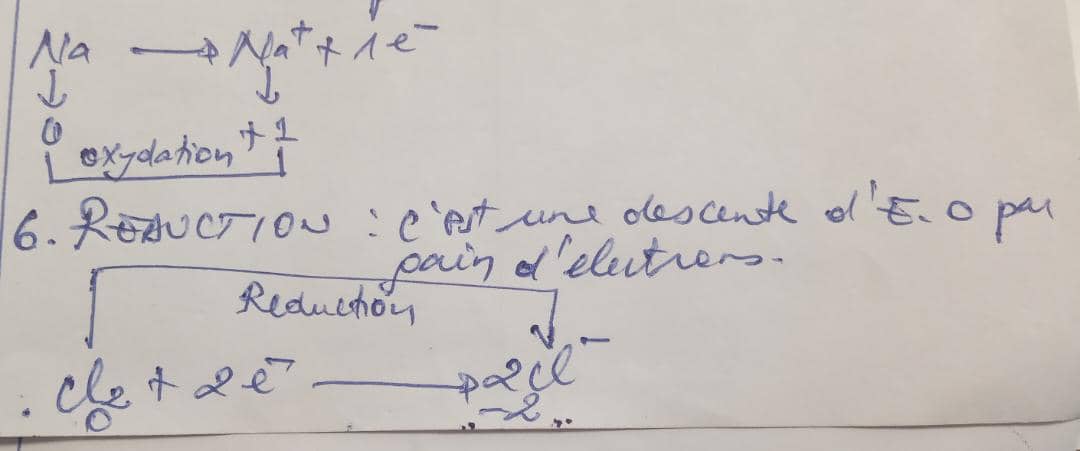 Na → Na⁺ + 1e⁻
↓ ↓
0 oxydation +1
6. REDUCTION : c'est une descente d'E.O par
gain d'électrons.
Reduction
. Cl₂ + 2e⁻ → 2Cl⁻
0 -2